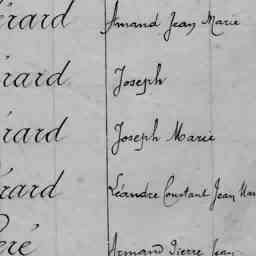 érard Armand Jean Marie
érard Joseph
érard Joseph Marie
érard Léandre Constant Jean Mar
éré Armand Pierre Jean